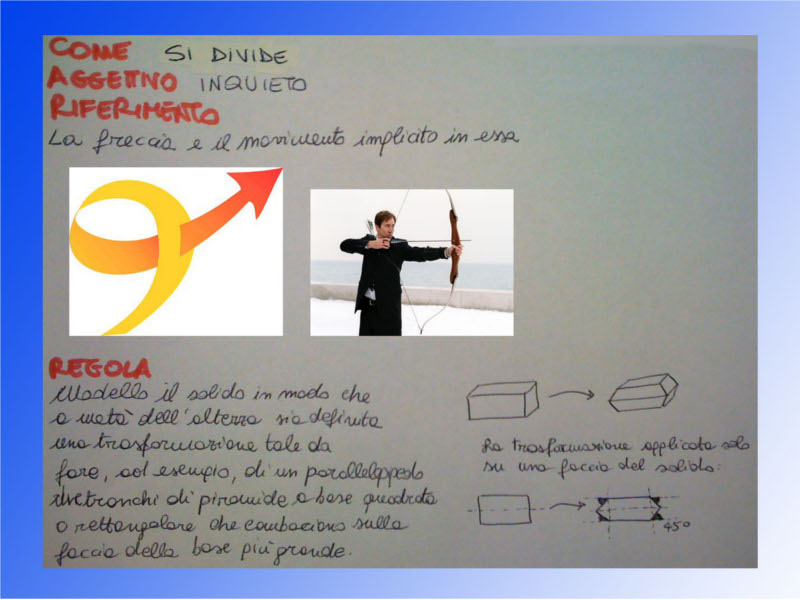 COME SI DIVIDE
AGGETTIVO INQUIETO
RIFERIMENTO
La freccia e il movimento implicito in essa
REGOLA
Modello il solido in modo che
a metà dell'altezza sia definita
una trasformazione tale da
fare, ad esempio, di un parallelepipedo
due tronchi di piramide a base quadrata
o rettangolare che combaciano sulla
faccia della base più grande.
La trasformazione applicata solo
su una faccia del solido:
45°